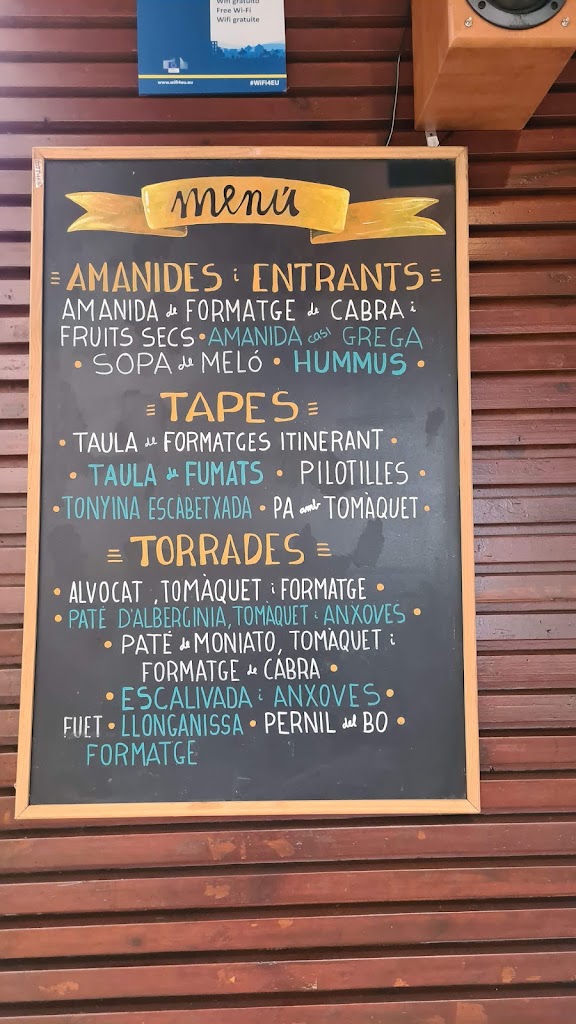 Wifi gratuito
Free Wi-Fi
Wifi gratuite
www.wifi4eu.eu #WiFi4EU
menú
AMANIDES i ENTRANTS
AMANIDA de FORMATGE de CABRA i
FRUITS SECS • AMANIDA casi GREGA
• SOPA de MELÓ • HUMMUS •
TAPES
• TAULA de FORMATGES ITINERANT •
• TAULA de FUMATS • PILOTILLES •
• TONYINA ESCABETXADA • PA amb TOMÀQUET •
TORRADES
• ALVOCAT, TOMÀQUET i FORMATGE •
• PATÉ D'ALBERGINIA, TOMÀQUET i ANXOVES •
• PATÉ de MONIATO, TOMÀQUET i
FORMATGE de CABRA •
• ESCALIVADA i ANXOVES •
FUET • LLONGANISSA • PERNIL del BO •
FORMATGE